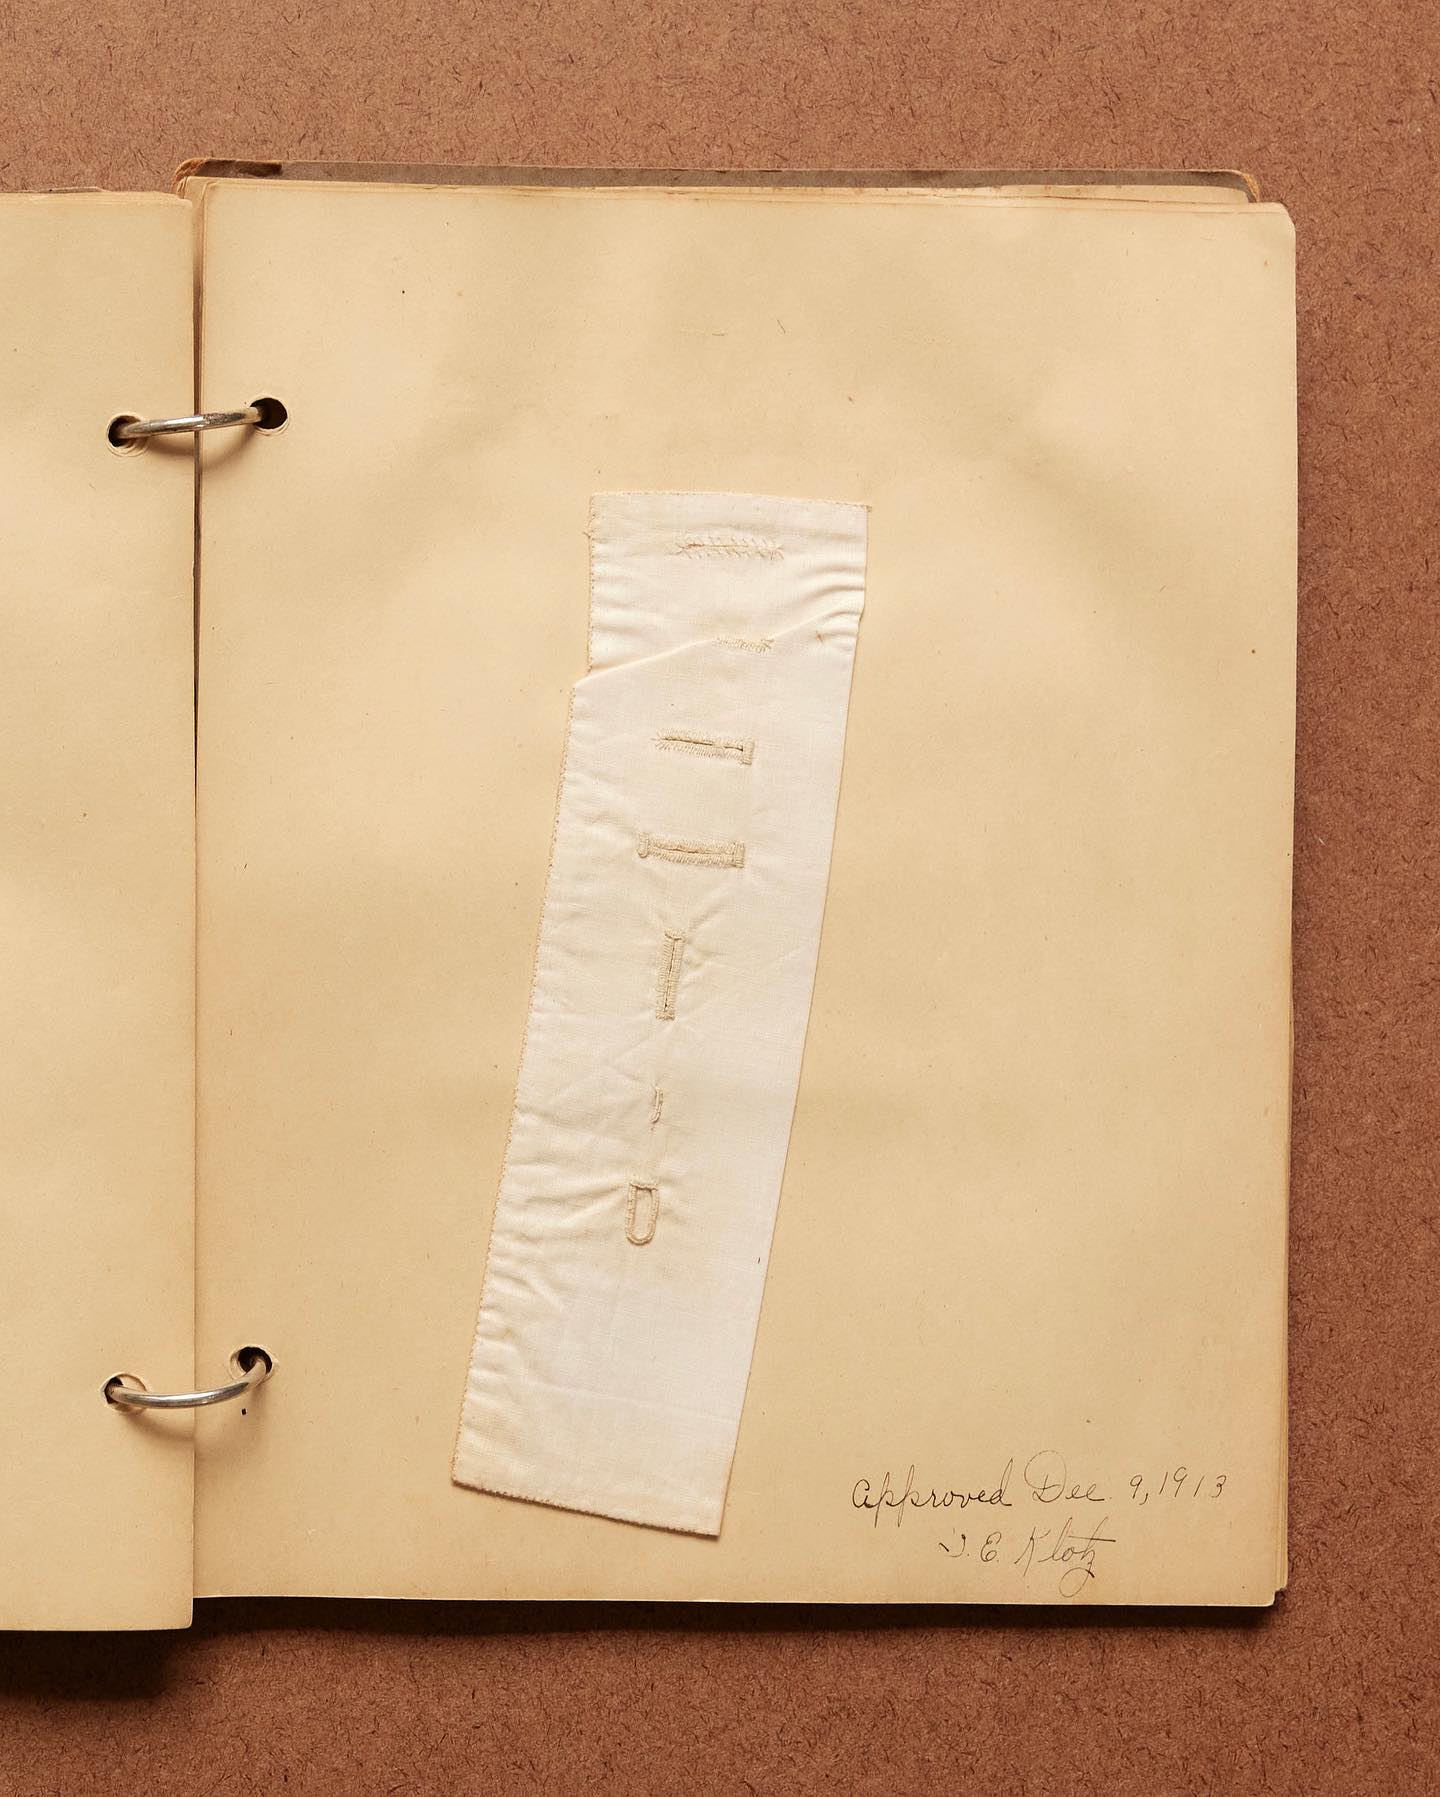 Approved Dec. 9, 1913
J. E. Klotz